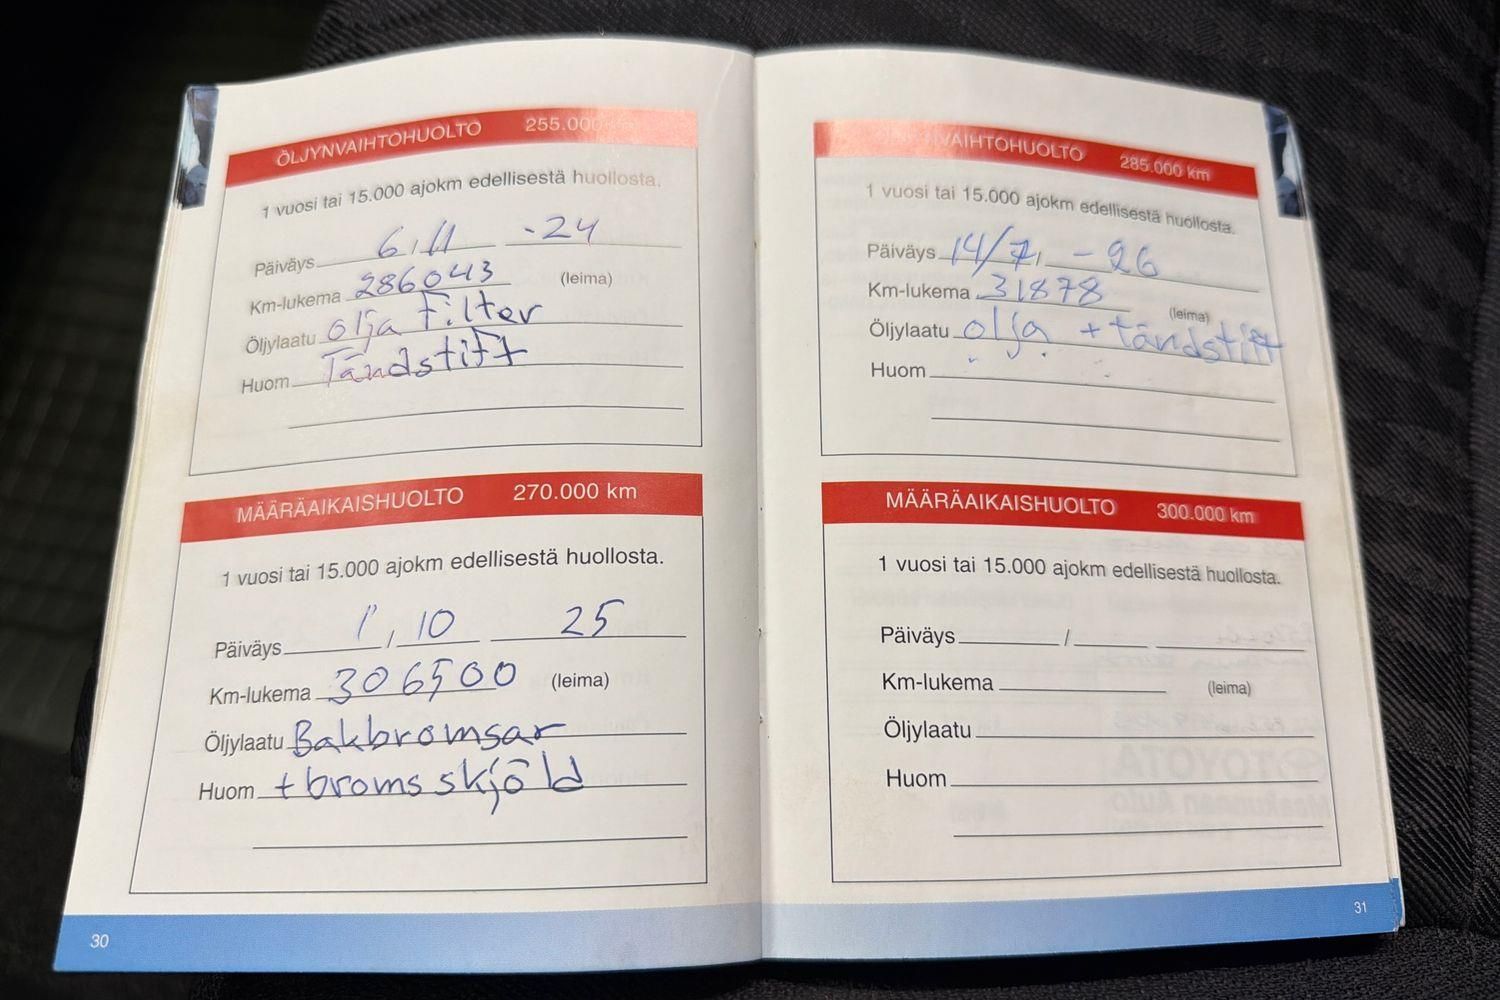 ÖLJYNVAIHTOHUOLTO 255.000 km
1 vuosi tai 15.000 ajokm edellisestä huollosta.
Päiväys 6, 11 -24
Km-lukema 286043 (leima)
Öljylaatu olja Filter
Huom Tändstift
MÄÄRÄAIKAISHUOLTO 270.000 km
1 vuosi tai 15.000 ajokm edellisestä huollosta.
Päiväys 1, 10 25
Km-lukema 306500 (leima)
Öljylaatu Bakbromsar
Huom + broms skjöld
30
VAIHTOHUOLTO 285.000 km
1 vuosi tai 15.000 ajokm edellisestä huollosta.
Päiväys 14/7, -26
Km-lukema 31878 (leima)
Öljylaatu olja + tändstift
Huom
MÄÄRÄAIKAISHUOLTO 300.000 km
1 vuosi tai 15.000 ajokm edellisestä huollosta.
Päiväys /
Km-lukema (leima)
Öljylaatu
Huom
31